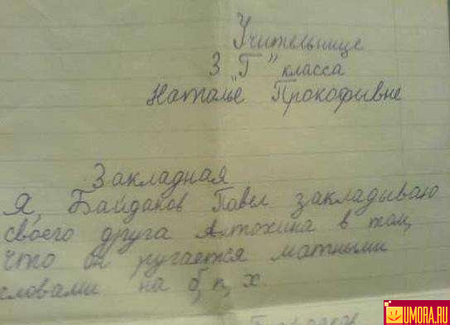 Учительнице
3 "Г" класса
Наталье Прокофьвне
Закладная
Я, Байдаков Павел закладываю
своего друга Алтохина в том,
что он ругается матными
словами на б, п, х.
UMORA.RU